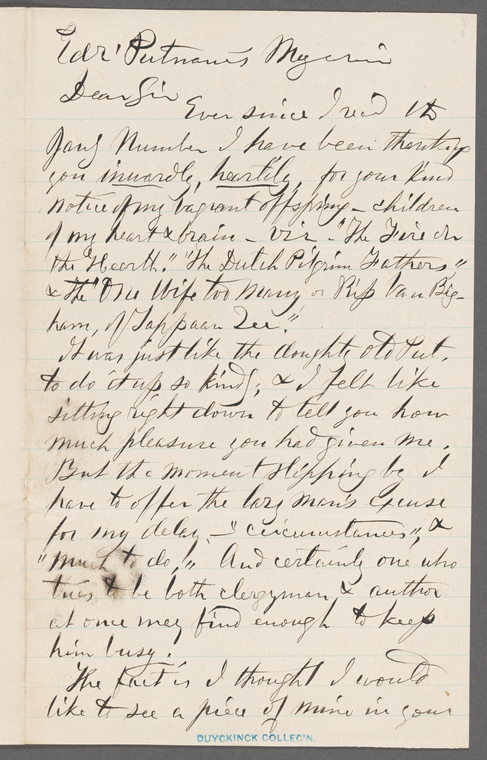 Edr Putnam's Magazin
Dear Sir
Ever since I read the
Jany Number I have been thanking
you inwardly, heartily, for your kind
notice of my vagrant offspring - children
of my heart & brain - viz - "The Fire on
the Hearth." "The Dutch Pilgrim Fathers"
& the "One Wife too many or Rip Van Big-
ham, of Tappaan Zee."
It was just like the doughty old Put.
to do it up so kindly; & I felt like
sitting right down to tell you how
much pleasure you had given me.
But the moment slipping by I
have to offer the lazy man's excuse
for my delay, - "circumstances", &
"much to do." And certainly one who
tries to be both clergyman & author
at once may find enough to keep
him busy.
The fact is I thought I would
like to see a piece of mine in your
DUYCKINCK COLLEC'N.